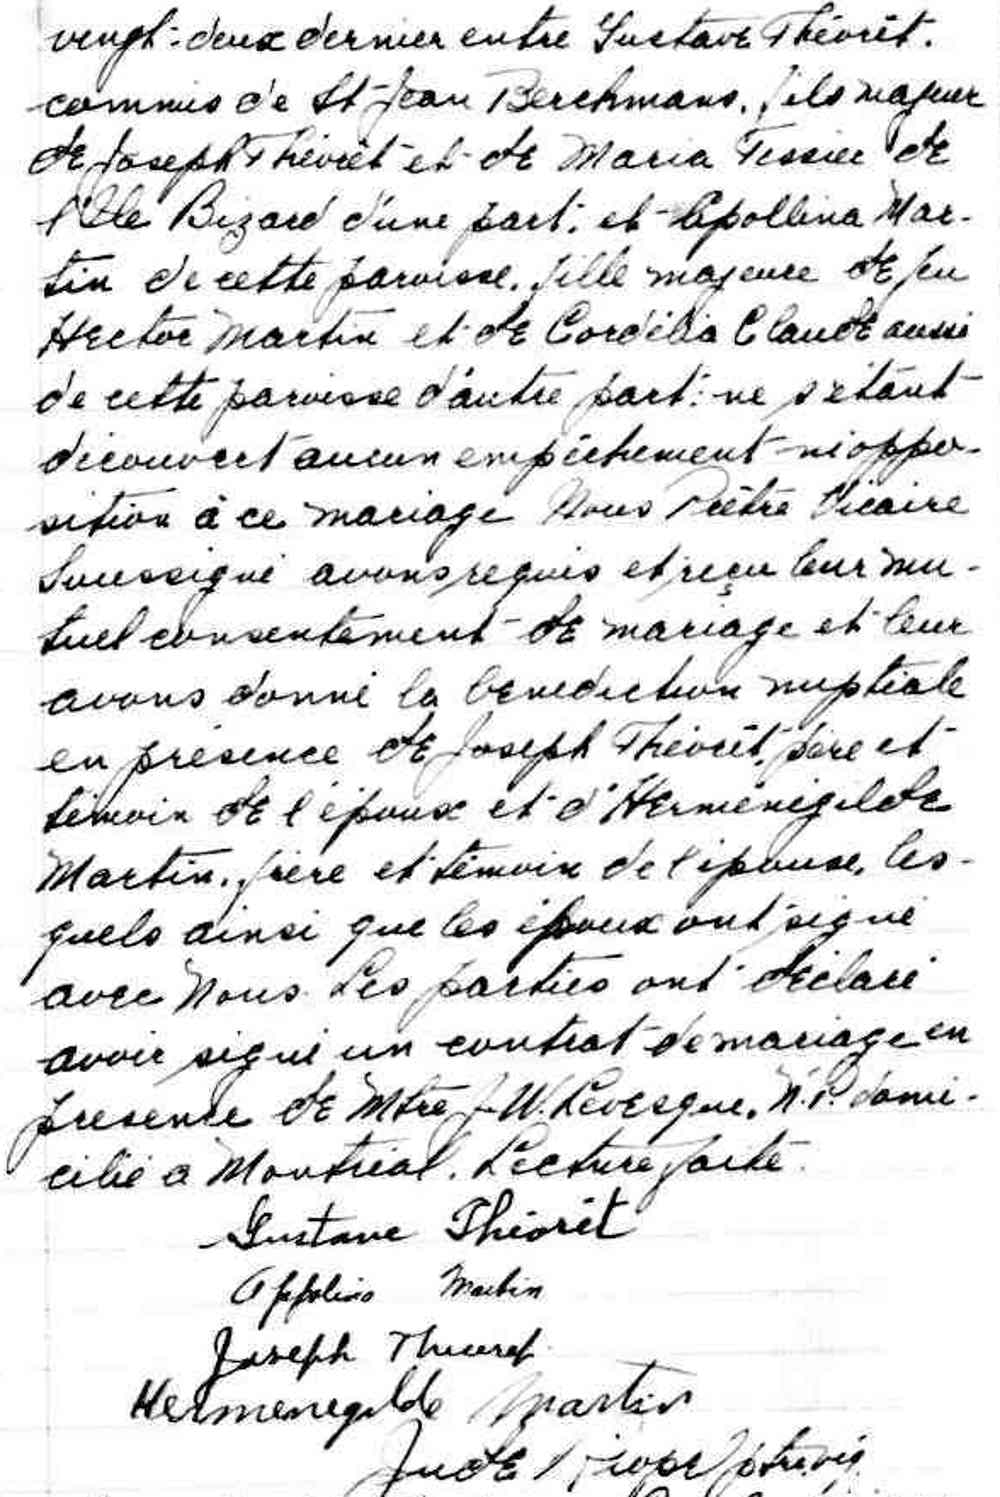 vingt-deux dernier entre Gustave Théorêt.
commis de St-Jean Berchmans, fils majeur
de Joseph Théorêt et de Maria Tessier de
l'Ile Bizard d'une part; et Apollina Mar-
tin de cette paroisse, fille majeure de feu
Hector Martin et de Cordélia Claude aussi
de cette paroisse d'autre part: ne s'étant
découvert aucun empêchement ni oppo-
sition à ce mariage Nous Prêtre Vicaire
Soussigné avons requis et reçu leur mu-
tuel consentement de mariage et leur
avons donné la bénédiction nuptiale
en présence de Joseph Théorêt, père et
témoin de l'époux et d'Herménégilde
Martin, frère et témoin de l'épouse, les-
quels ainsi que les époux ont signé
avec Nous. Les parties ont déclaré
avoir signé un contrat de mariage en
présence de Mtre J-W. Levesque, N.P. domi-
cilié a Montréal. Lecture faite.
Gustave Théorêt
Appolina Martin
Joseph Theoret
Hermenegilde Martin
Jude ptre, vic.